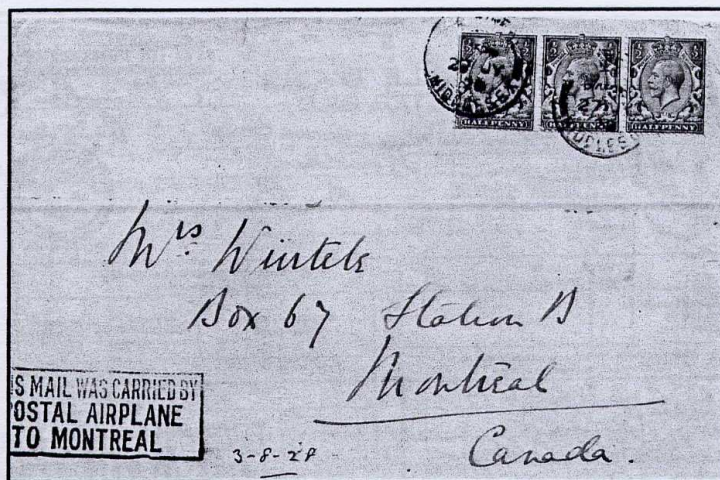 HALFPENNY HALFPENNY HALFPENNY
MIDDLESEX
Mrs
Box 67 Station B
Montreal
Canada.
IS MAIL WAS CARRIED BY
OSTAL AIRPLANE
TO MONTREAL
3-8-28